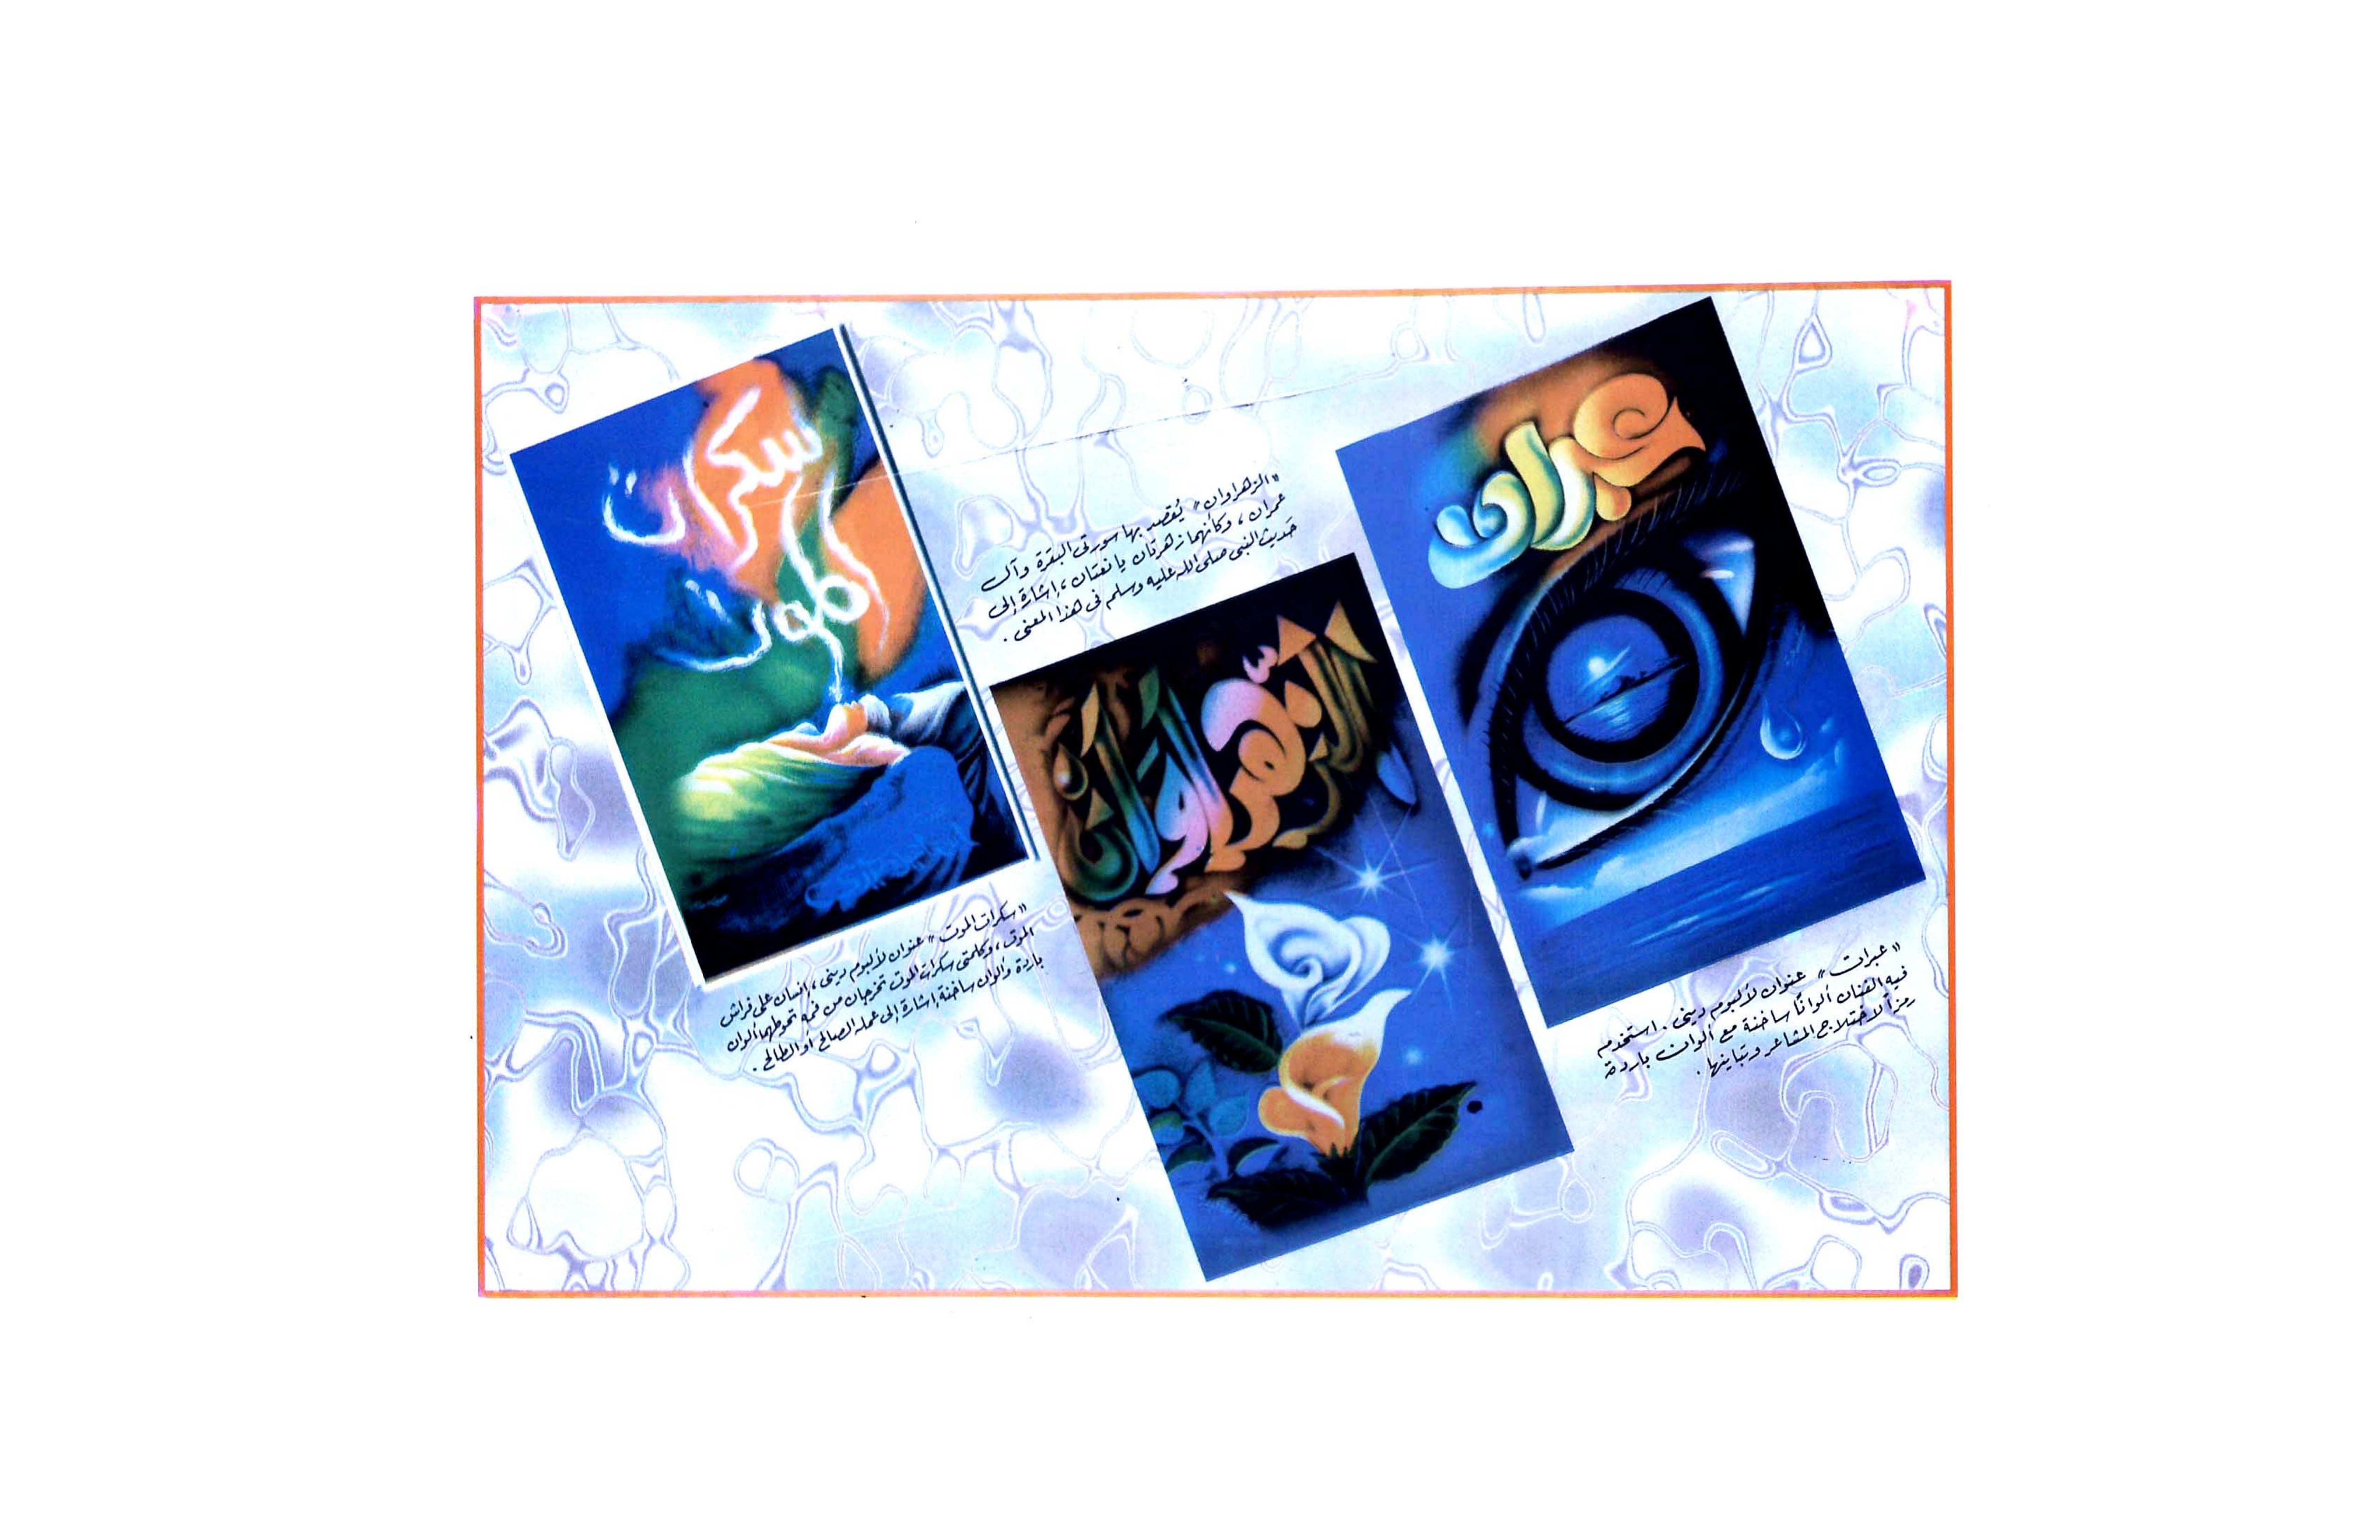 عبرات
"عبرات" عنوان لألبوم ديني. استخدم
فيه الفنان ألوانًا ساخنة مع ألوان باردة
رمزاً لاختلاج المشاعر وتباينها.
"الزهراوان" يُقصد بها سورتى البقرة وآل
عمران، وكأنهما زهرتان يانعتان، إشارة إلى
حَديث النبي صلى الله عليه وسلم فى هذا المعنى.
الزهراوان
سكرات
الموت
"سكرات الموت" عنوان لألبوم ديني، إنسان على فراش
الموت، وكلمتى سكرات الموت تخرجان من فمه تحوطهما ألوان
باردة وألوان ساخنة إشارة إلى عمله الصالح أو الطالح.